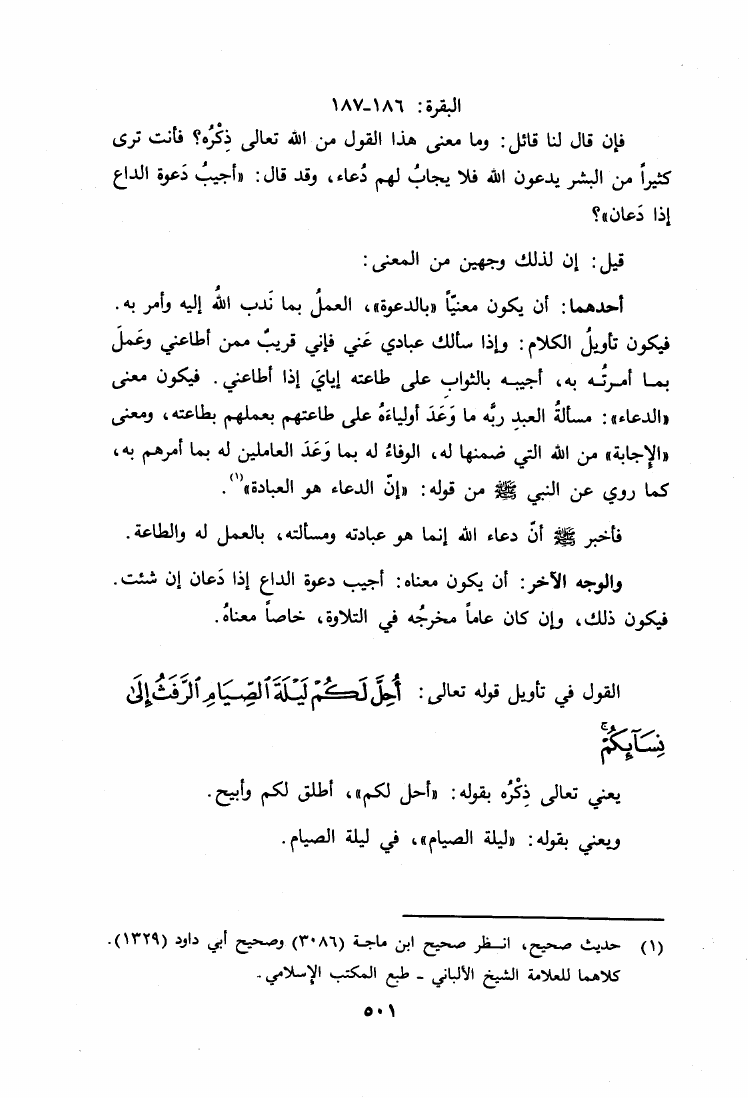 البقرة: ١٨٦-١٨٧
فإن قال لنا قائل: وما معنى هذا القول من الله تعالى ذِكْرُه؟ فأنت ترى
كثيراً من البشر يدعون الله فلا يجابُ لهم دُعاء، وقد قال: «أجيبُ دَعوة الداع
إذا دَعان»؟
قيل: إن لذلك وجهين من المعنى:
أحدهما: أن يكون معنيّاً «بالدعوة»، العملُ بما نَدب اللهُ إليه وأمر به.
فيكون تأويلُ الكلام: وإذا سألك عبادي عَني فإني قريبٌ ممن أطاعني وعَملَ
بما أمرتُه به، أجيبه بالثوابِ على طاعته إيايَ إذا أطاعني. فيكون معنى
«الدعاء»: مسألةُ العبدِ ربَّه ما وَعَدَ أولياءَهُ على طاعتهم بعملهم بطاعته، ومعنى
«الإجابة» من الله التي ضمنها له، الوفاءُ له بما وَعَدَ العاملين له بما أمرهم به،
كما روي عن النبي ﷺ من قوله: «إنّ الدعاء هو العبادة»(١).
فأخبر ﷺ أنّ دعاء الله إنما هو عبادته ومسألته، بالعمل له والطاعة.
والوجه الآخر: أن يكون معناه: أجيب دعوة الداع إذا دَعان إن شئت.
فيكون ذلك، وإن كان عاماً مخرجُه في التلاوة، خاصاً معناهُ.
القول في تأويل قوله تعالى: أُحِلَّ لَكُمْ لَيْلَةَ ٱلصِّيَامِ ٱلرَّفَثُ إِلَىٰ
نِسَآئِكُمْ ۚ
يعني تعالى ذِكْرُه بقوله: «أحل لكم»، أطلق لكم وأبيح.
ويعني بقوله: «ليلة الصيام»، في ليلة الصيام.
(١) حديث صحيح، انظر صحيح ابن ماجة (٣٠٨٦) وصحيح أبي داود (١٣٢٩).
كلاهما للعلامة الشيخ الألباني - طبع المكتب الإسلامي.
٥٠١